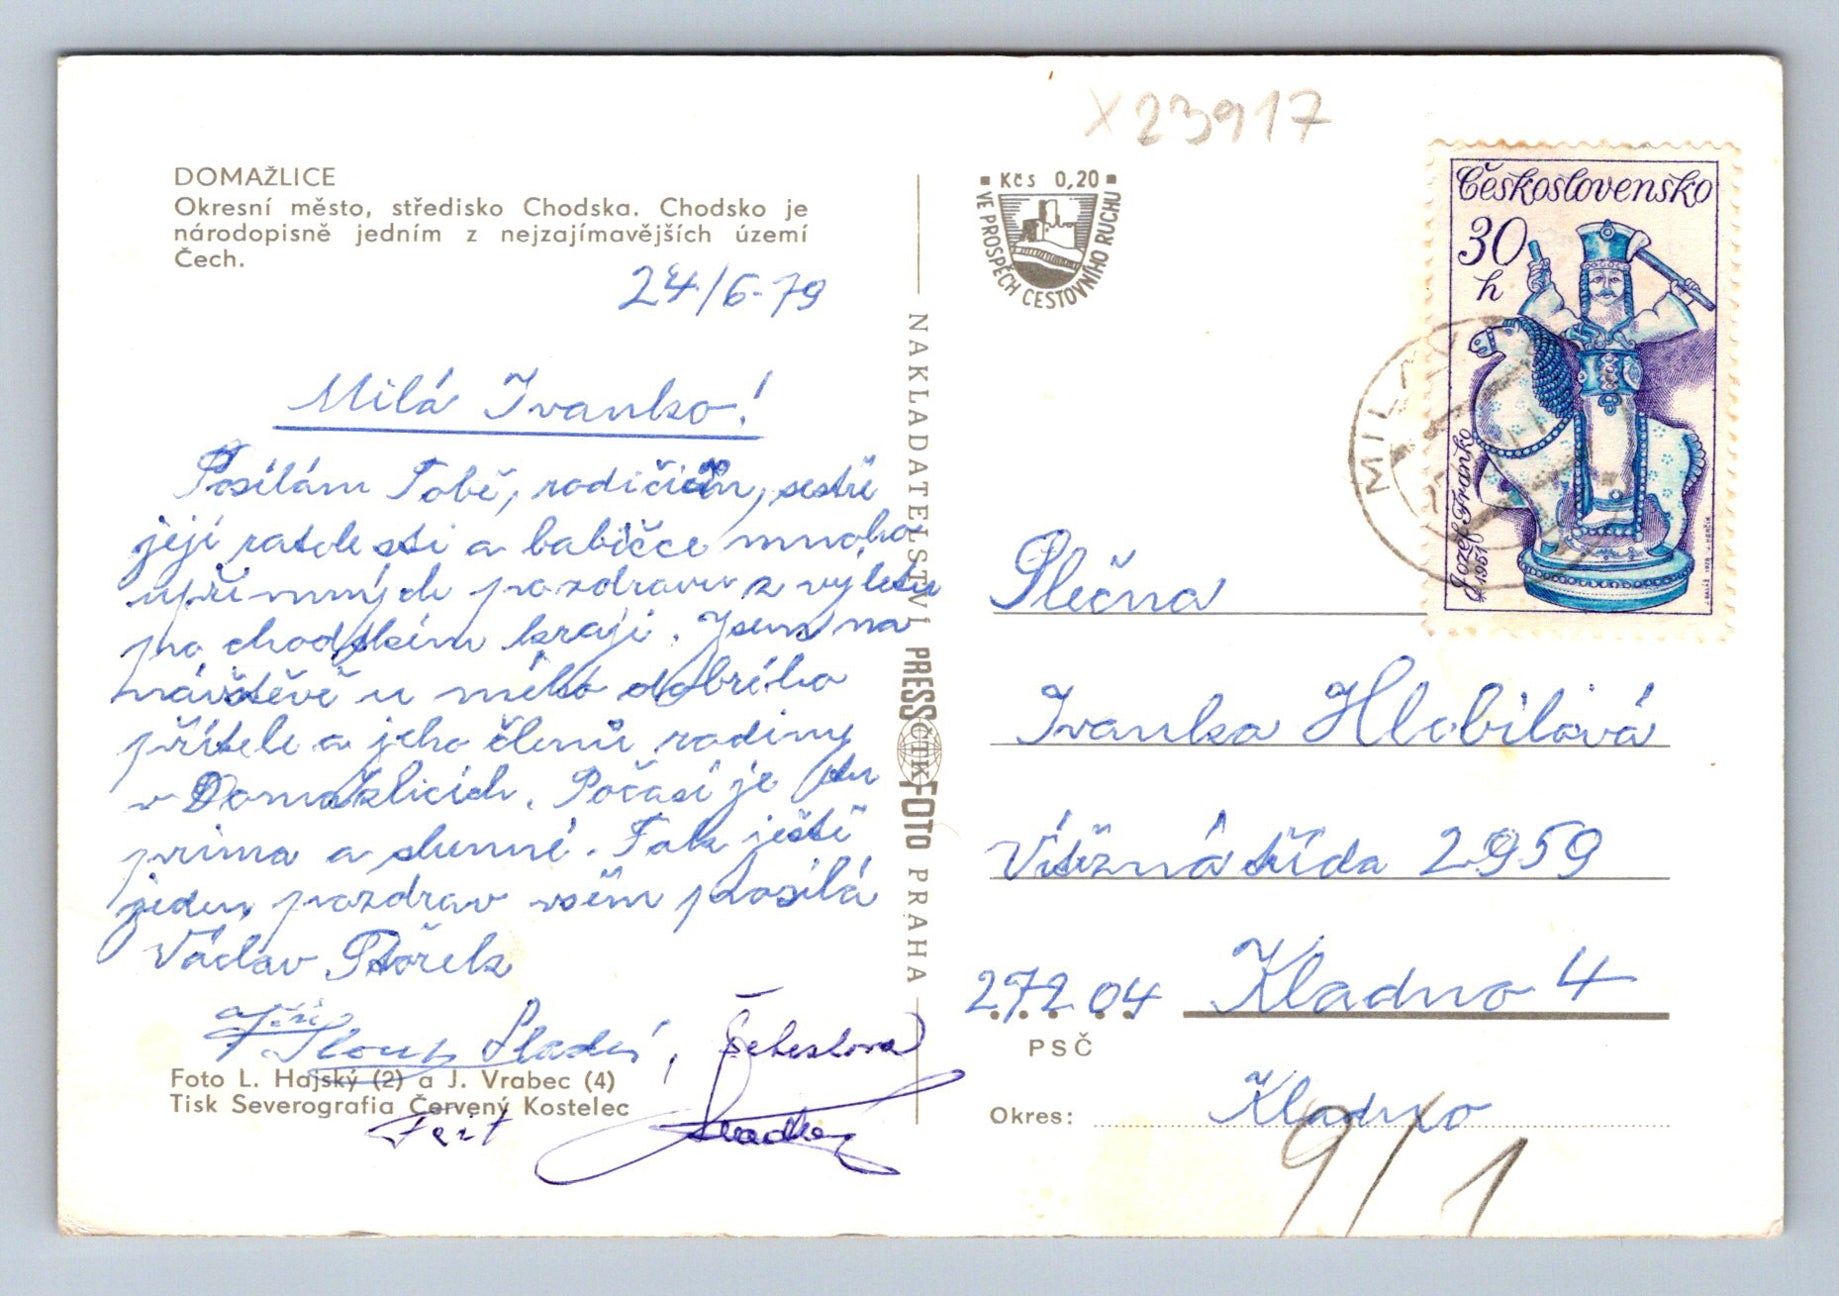 X23917
DOMAŽLICE
Okresní město, středisko Chodska. Chodsko je
národopisně jedním z nejzajímavějších území
Čech.
24/6-79
Milá Ivanko!
Posílám Tobě, rodičům, sestře
její ratolesti a babičce mnoho
upřímných pozdravů z výletu
po chodském kraji. Jsem na
návštěvě u mého dobrého
přítele a jeho členů rodiny
v Domažlicích. Počasí je tu
prima a slunné. Tak ještě
jeden pozdrav všem posílá
Václav
Foto L. Hajský (2) a J. Vrabec (4)
Tisk Severografia Červený Kostelec
NAKLADATELSTVÍ PRESSFOTO PRAHA
ČTK
Kčs 0,20
VE PROSPĚCH CESTOVNÍHO RUCHU
Československo
30
h
Jozef Franko
* 1951
Slečna
Ivanka Hlobilová
Vítězná třída 2959
272 04 Kladno 4
PSČ
Okres: Kladno
9/1